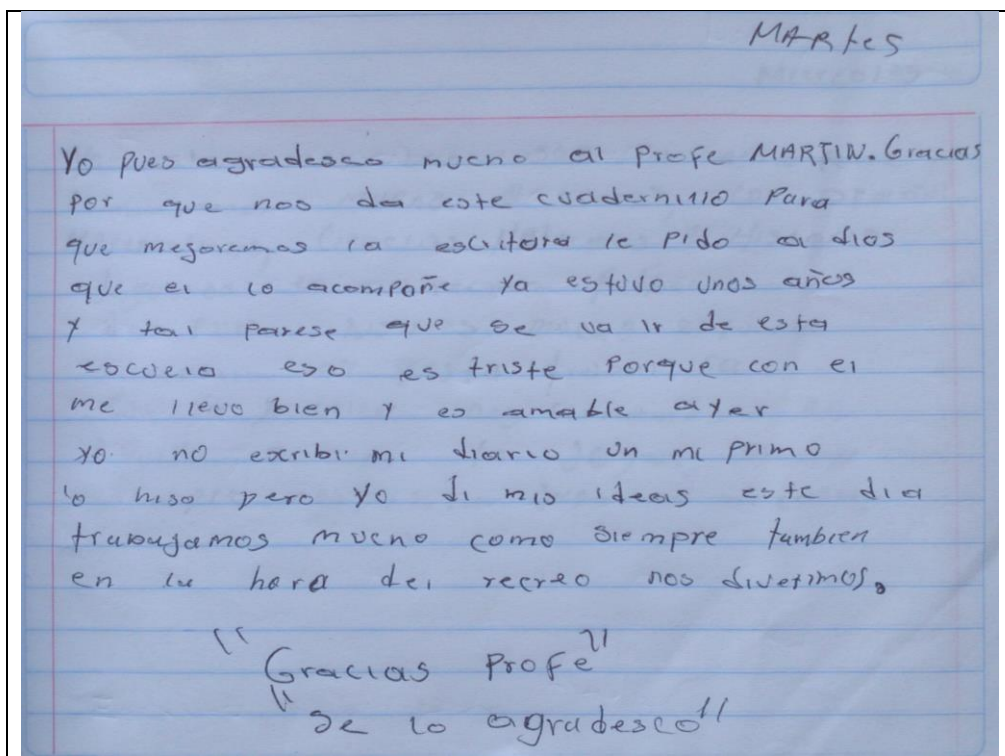 MARtes
Yo pues agradesco mucho al profe MARTIN. Gracias
por que nos da este cuadernillo para
que mejoremos la escritora le pido a dios
que el lo acompañe ya estuvo unos años
y tal parese que se va ir de esta
escuela eso es triste porque con el
me llevo bien y es amable ayer
yo. no exribi. mi diario un mi primo
lo hiso pero yo di mis ideas este dia
trabajamos mucho como siempre tambien
en la hora del recreo nos divetimos.
"Gracias profe"
"se lo agradesco"